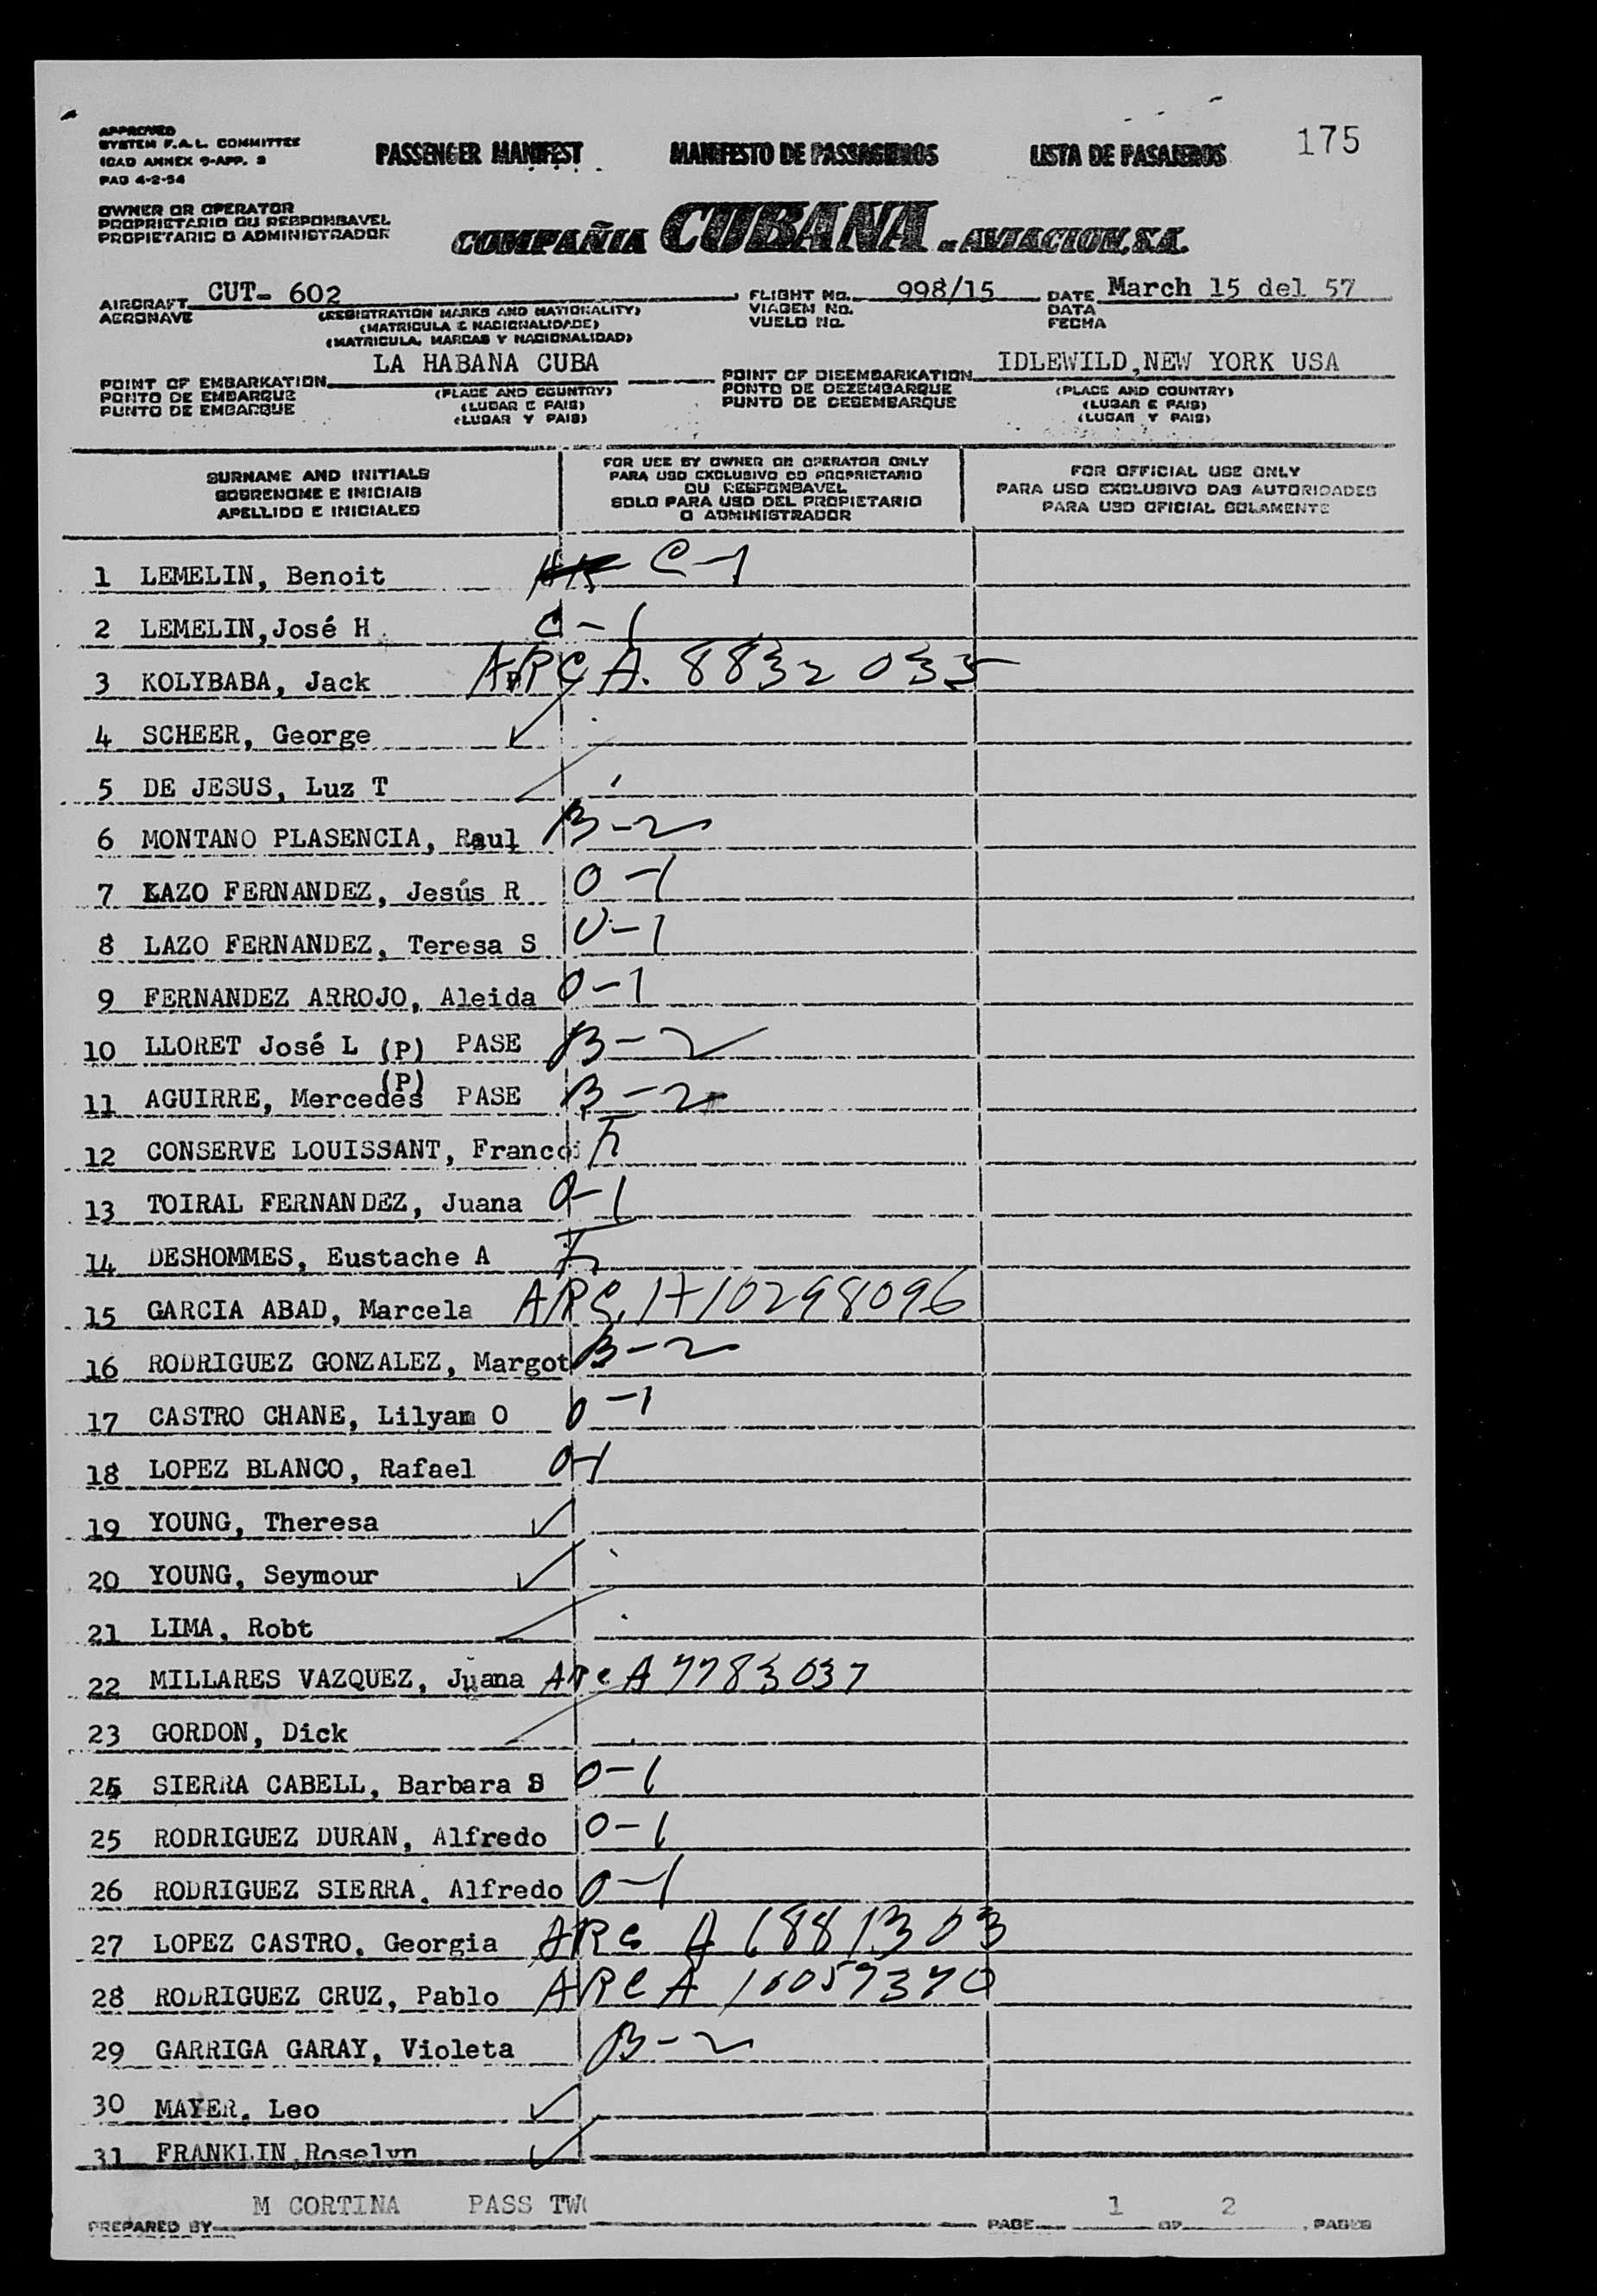 175
APPROVED
SYSTEM F.A.L. COMMITTEE
ICAO ANNEX 9-APP. 3
PAG 4-2-54
PASSENGER MANIFEST MANIFESTO DE PASSAGIEROS LISTA DE PASAJEROS
OWNER OR OPERATOR
PROPRIETARIO OU RESPONSAVEL
PROPIETARIO O ADMINISTRADOR
COMPAÑIA CUBANA DE AVIACION, S.A.
AIRCRAFT CUT- 602 FLIGHT No. 998/15 DATE March 15 del 57
AERONAVE (REGISTRATION MARKS AND NATIONALITY) VIAGEM No. DATA
(MATRICULA E NACIONALIDADE) VUELO No. FECHA
(MATRICULA, MARCAS Y NACIONALIDAD)
POINT OF EMBARKATION LA HABANA CUBA POINT OF DISEMBARKATION IDLEWILD,NEW YORK USA
PONTO DE EMBARQUE (PLACE AND COUNTRY) PONTO DE DEZEMBARQUE (PLACE AND COUNTRY)
PUNTO DE EMBARQUE (LUGAR E PAIS) PUNTO DE DESEMBARQUE (LUGAR E PAIS)
(LUGAR Y PAIS) (LUGAR Y PAIS)
SURNAME AND INITIALS
SOBRENOME E INICIAIS
APELLIDO E INICIALES
FOR USE BY OWNER OR OPERATOR ONLY
PARA USO EXCLUSIVO DO PROPRIETARIO
OU RESPONSAVEL
SOLO PARA USO DEL PROPIETARIO
O ADMINISTRADOR
FOR OFFICIAL USE ONLY
PARA USO EXCLUSIVO DAS AUTORIDADES
PARA USO OFICIAL SOLAMENTE
1 LEMELIN, Benoit C-1
2 LEMELIN,José H. C-1
3 KOLYBABA, Jack ARC A. 8832035
4 SCHEER, George
5 DE JESUS, Luz T
6 MONTANO PLASENCIA, Raul B-2
7 LAZO FERNANDEZ, Jesús R O-1
8 LAZO FERNANDEZ, Teresa S O-1
9 FERNANDEZ ARROJO, Aleida O-1
10 LLORET José L (P) PASE B-2
11 AGUIRRE, Mercedes (P) PASE B-2
12 CONSERVE LOUISSANT, Francoi
13 TOIRAL FERNANDEZ, Juana O-1
14 DESHOMMES, Eustache A
15 GARCIA ABAD, Marcela ARC. A10298096
16 RODRIGUEZ GONZALEZ, Margot B-2
17 CASTRO CHANE, Lilyam O O-1
18 LOPEZ BLANCO, Rafael O-1
19 YOUNG, Theresa
20 YOUNG, Seymour
21 LIMA, Robt
22 MILLARES VAZQUEZ, Juana ARC A 7783037
23 GORDON, Dick
24 SIERRA CABELL, Barbara S O-1
25 RODRIGUEZ DURAN, Alfredo O-1
26 RODRIGUEZ SIERRA, Alfredo O-1
27 LOPEZ CASTRO, Georgia ARC A 1881303
28 RODRIGUEZ CRUZ, Pablo ARC A 10057370
29 GARRIGA GARAY, Violeta B-2
30 MAYER, Leo
31 FRANKLIN,Roselyn
PREPARED BY M CORTINA PASS TWO PAGE 1 OF 2 PAGES